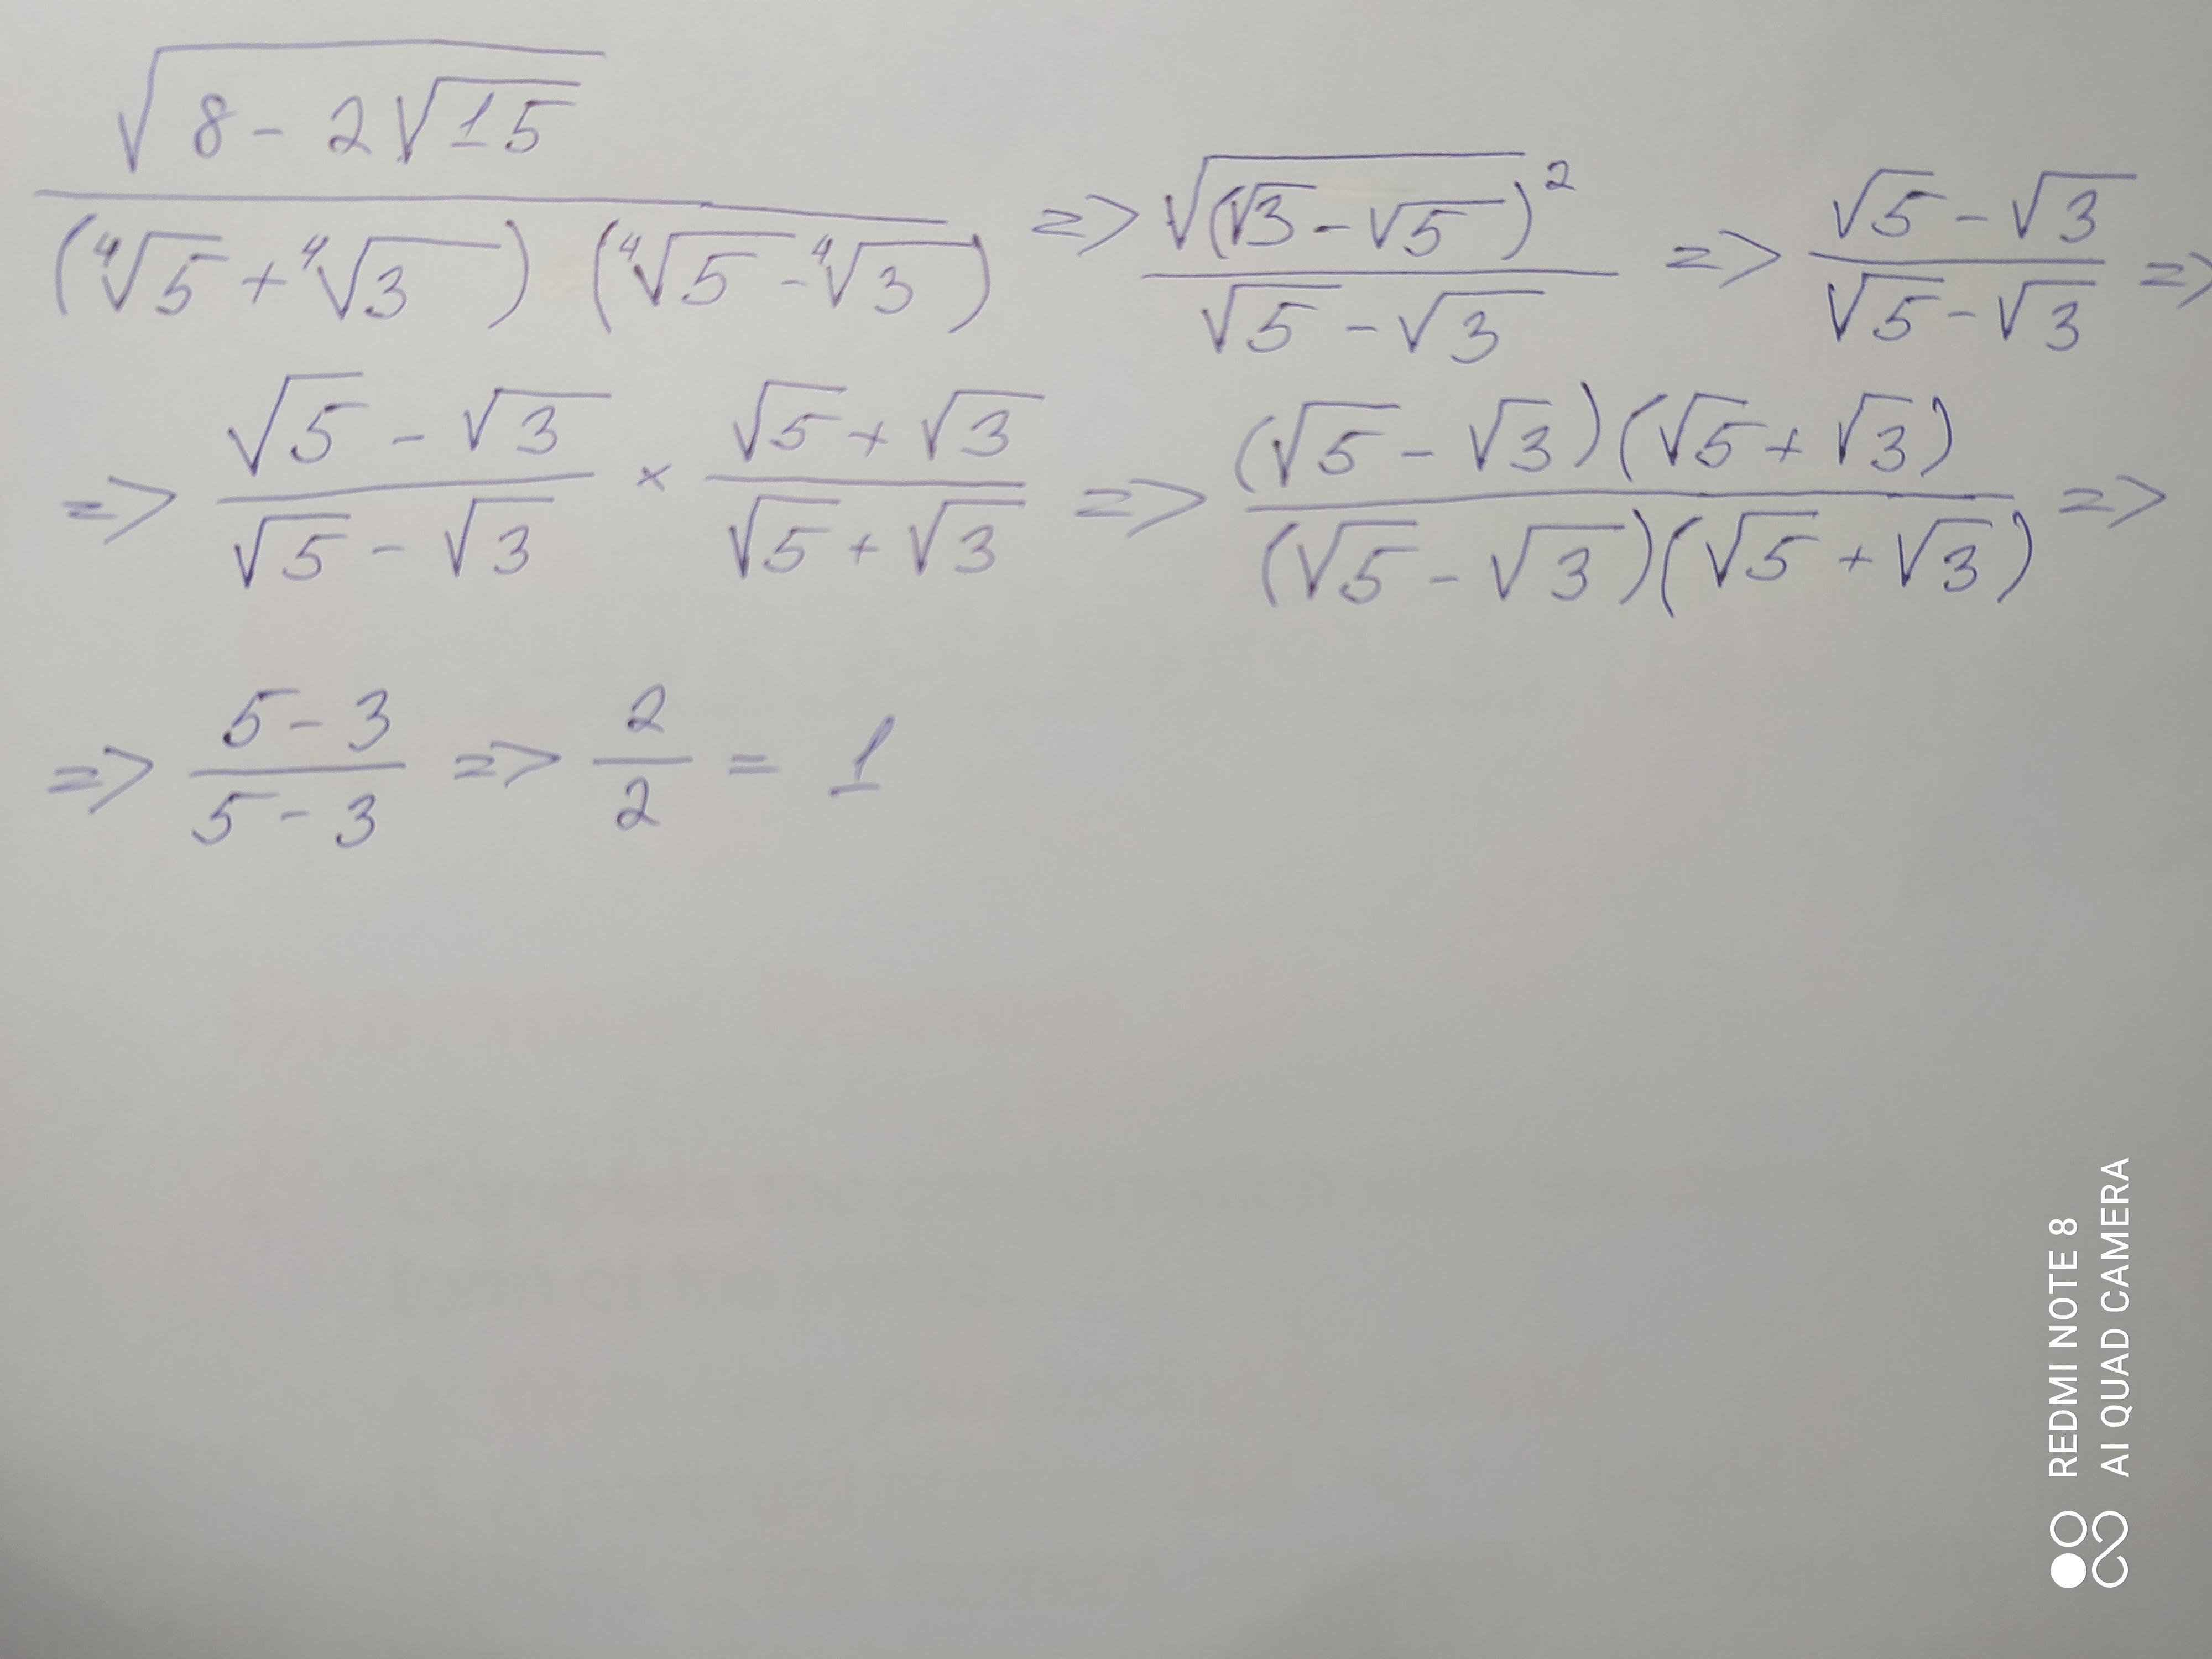 √(8 - 2√15) / (⁴√5 + ⁴√3) (⁴√5 - ⁴√3) => √(√3 - √5)² / √5 - √3 => √5 - √3 / √5 - √3 =>
=> √5 - √3 / √5 - √3 × √5 + √3 / √5 + √3 => (√5 - √3)(√5 + √3) / (√5 - √3)(√5 + √3) =>
=> 5 - 3 / 5 - 3 => 2 / 2 = 1
REDMI NOTE 8
AI QUAD CAMERA